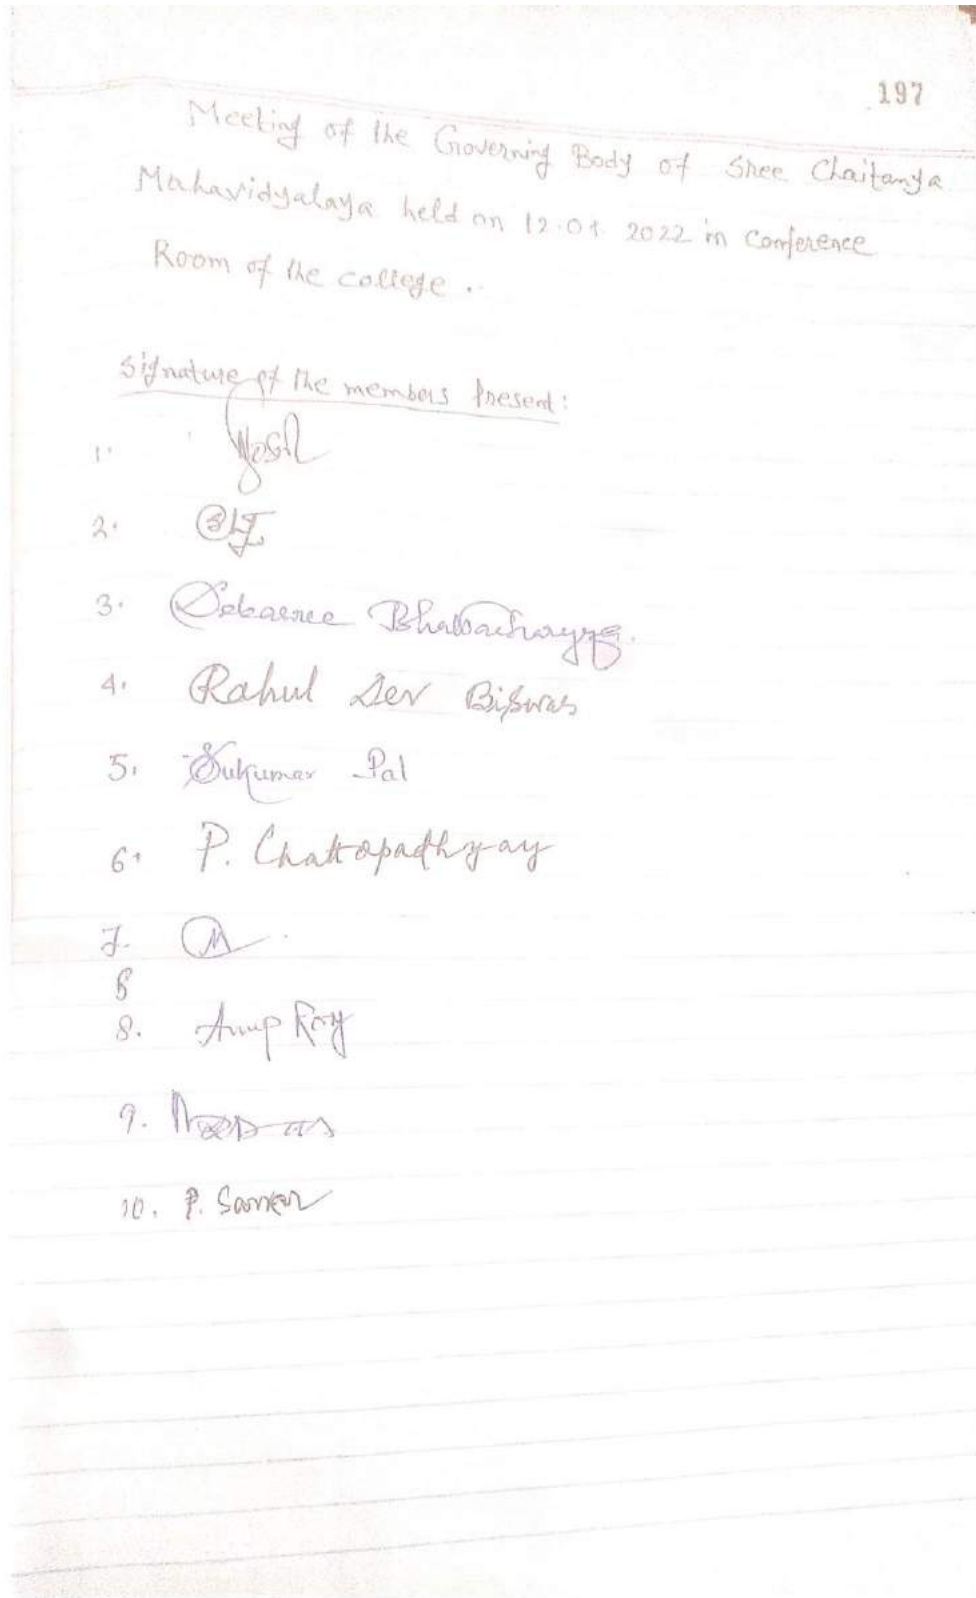 197
Meeting of the Governing Body of Shree Chaitanya
Mahavidyalaya held on 12.01.2022 in Conference
Room of the college.
Signature of the members Present:
1.
2.
3. Debasree Bhattacharyya.
4. Rahul Dev Biswas
5. Sukumar Pal
6. P. Chattopadhyay
7.
8
8. Anup Roy
9.
10. P. Sarker